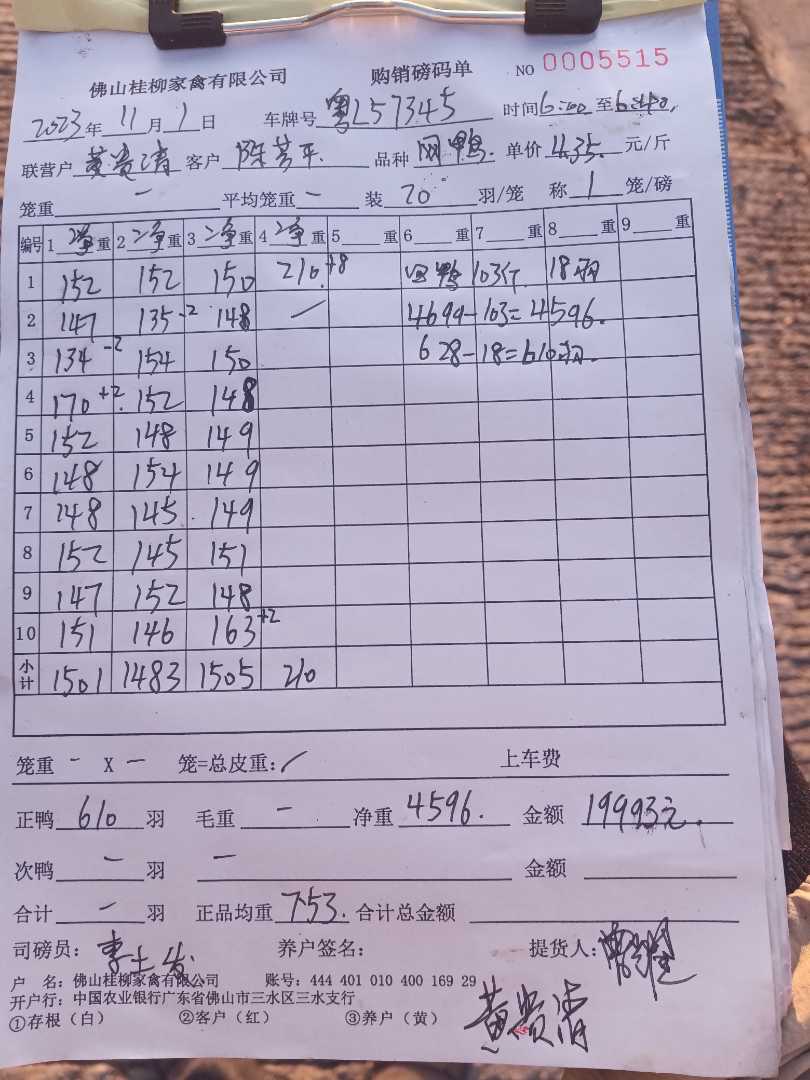 佛山桂柳家禽有限公司 购销磅码单 NO 0005515
2023年11月1日 车牌号 粤L57345 时间6:00至6:40.
联营户 黄贵清 客户 陈芳平. 品种 网鸭. 单价4.35.元/斤
笼重 一 平均笼重 一 装 20 羽/笼 称 1 笼/磅
编号 1 净重 2 净重 3 净重 4 净重 5 重 6 重 7 重 8 重 9 重
1 152 152 150 210.+8 回鸭 103斤. 18羽
2 147 135-2 148 / 4699-103=4596.
3 134-2 154 150 628-18=610羽.
4 170+2. 152 148
5 152 148 149
6 148 154 149
7 148 145 149
8 152 145 151
9 147 152 148
10 151 146 163+2
小计 1501 1483 1505 210
笼重 - X 一 笼=总皮重: / 上车费
正鸭 610 羽 毛重 一 净重 4596. 金额 19993元.
次鸭 一 羽 一 金额
合计 一 羽 正品均重 7.53. 合计总金额
司磅员: 李土发 养户签名: 提货人:
户 名: 佛山桂柳家禽有限公司 账号: 444 401 010 400 169 29
开户行: 中国农业银行广东省佛山市三水区三水支行
①存根（白） ②客户（红） ③养户（黄） 黄贵清